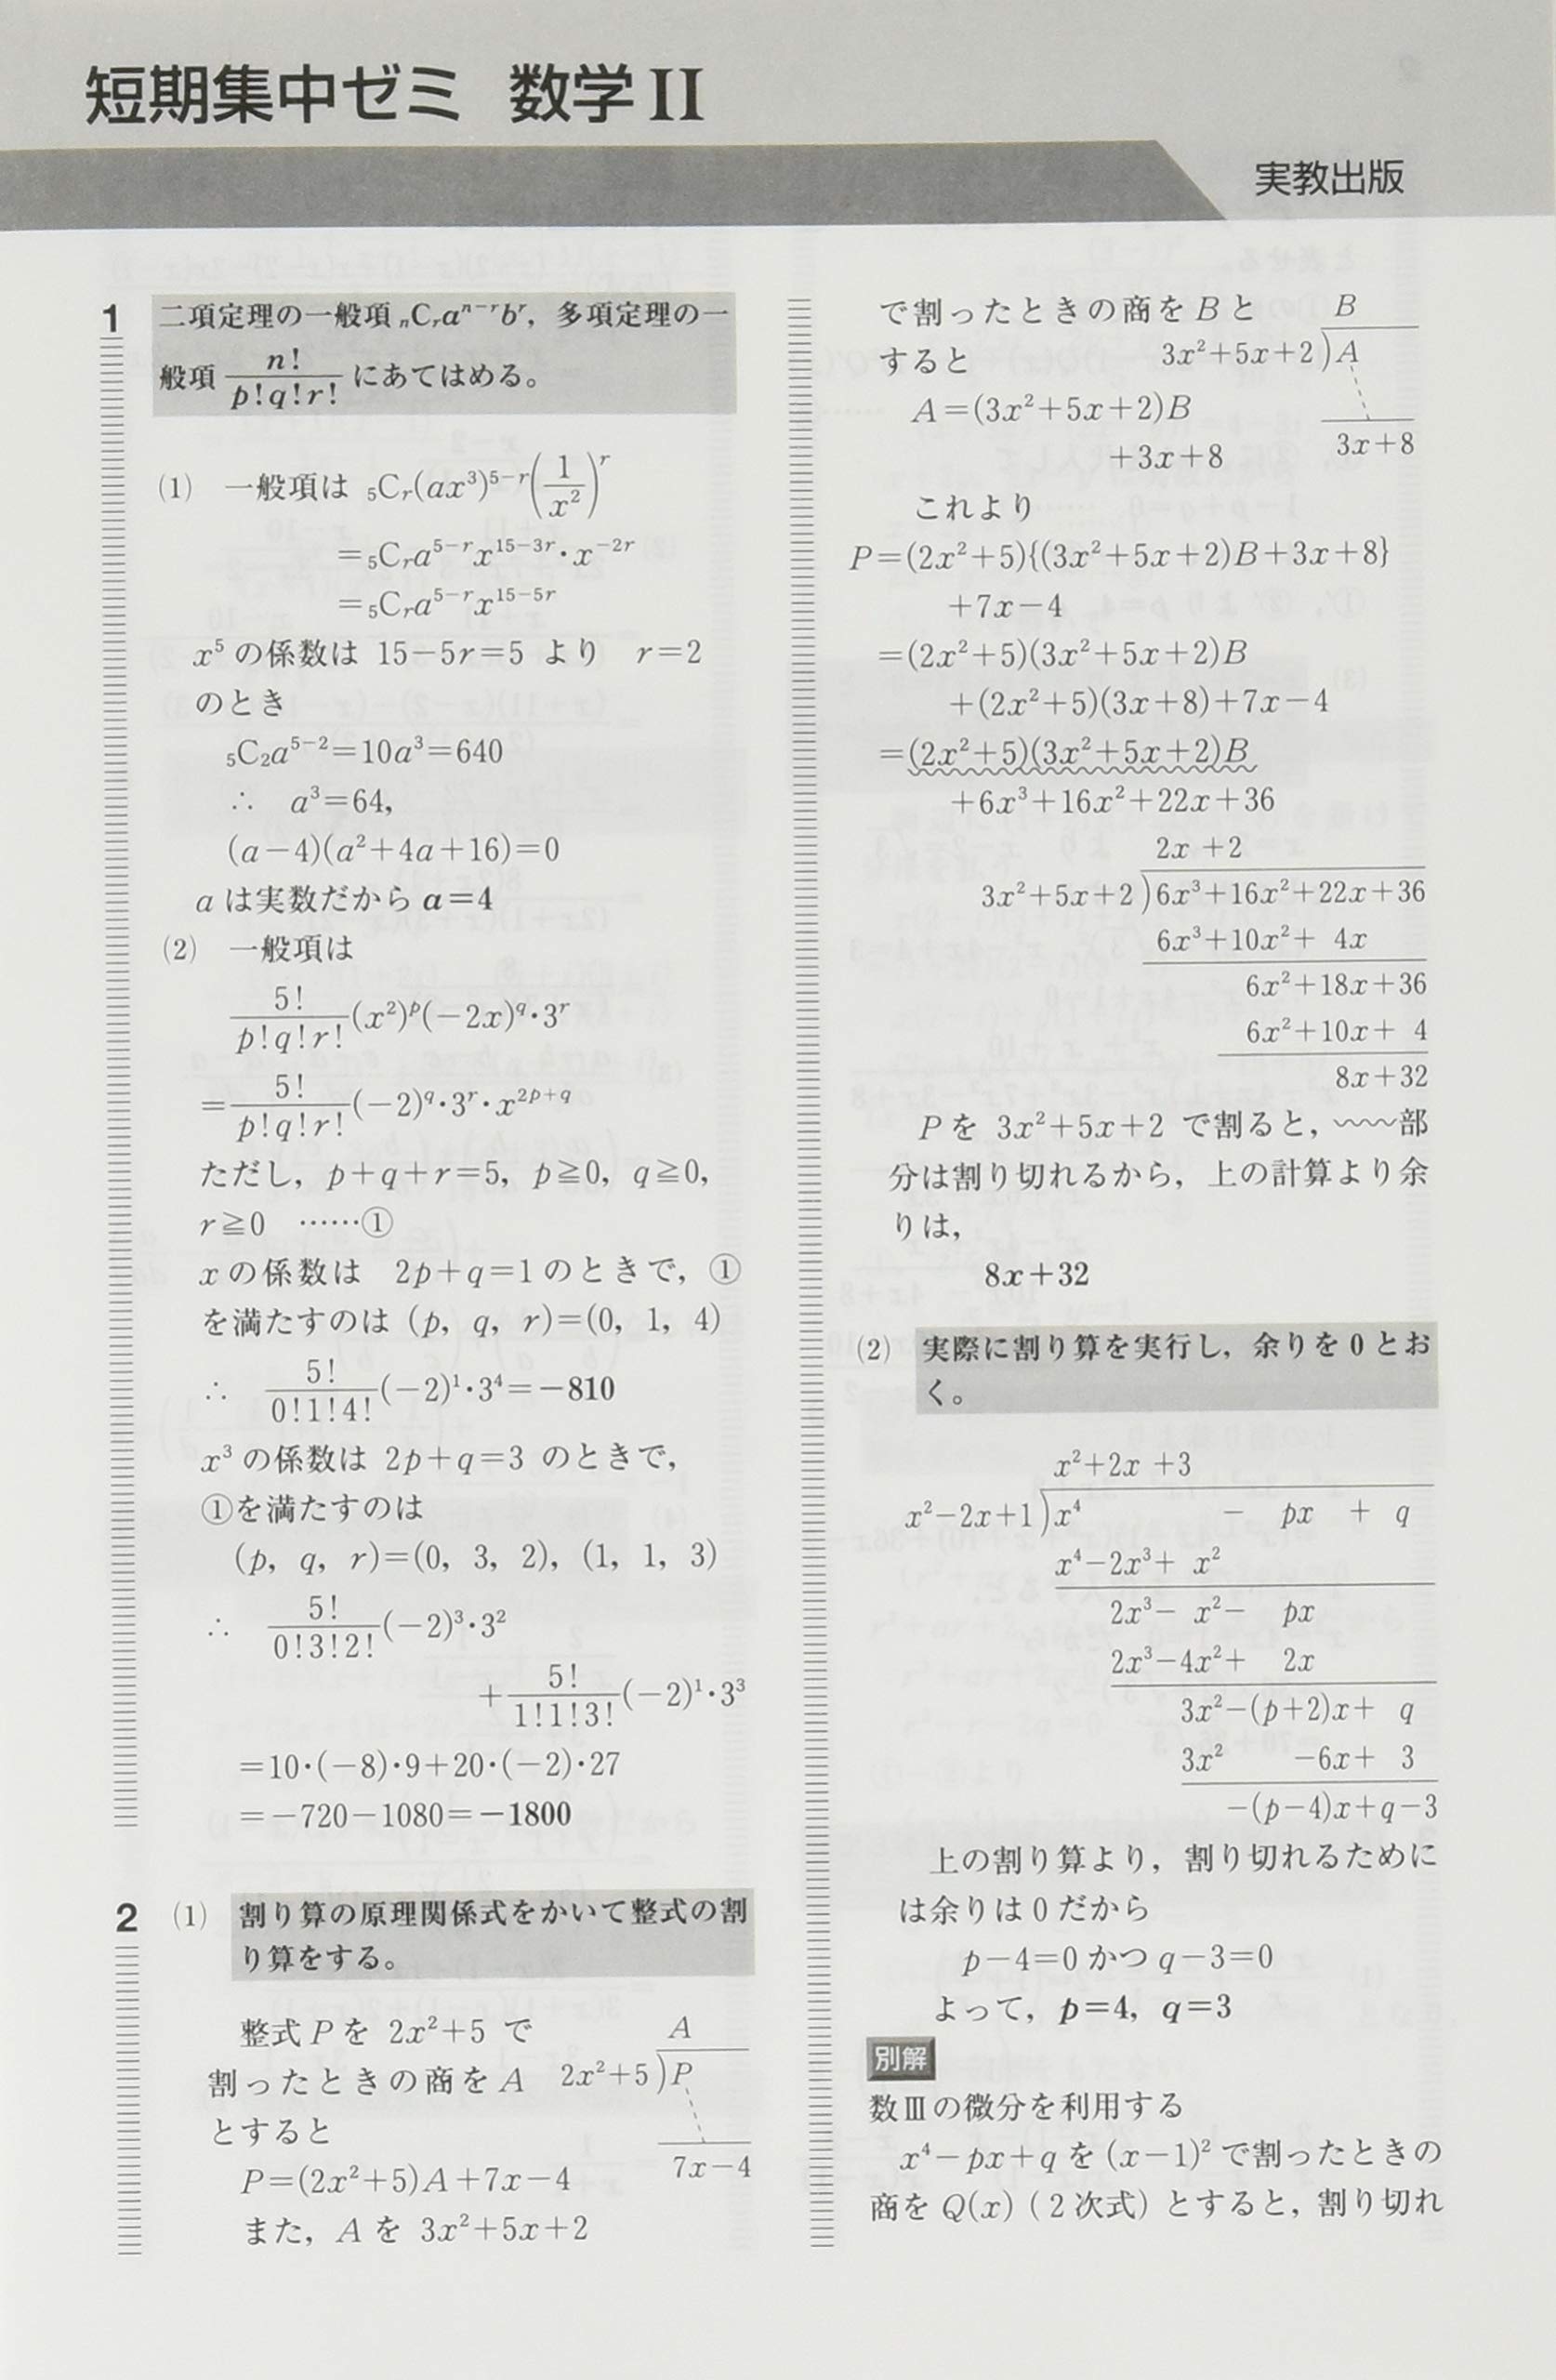 短期集中ゼミ 数学II
実教出版
1 二項定理の一般項 ₙCᵣaⁿ⁻ʳbʳ, 多項定理の一
般項 n!/(p!q!r!) にあてはめる。
(1) 一般項は ₅Cᵣ(ax³)⁵⁻ʳ(1/x²)ʳ
=₅Cᵣa⁵⁻ʳx¹⁵⁻³ʳ・x⁻²ʳ
=₅Cᵣa⁵⁻ʳx¹⁵⁻⁵ʳ
x⁵ の係数は 15−5r=5 より r=2
のとき
₅C₂a⁵⁻²=10a³=640
∴ a³=64,
(a−4)(a²+4a+16)=0
a は実数だから a=4
(2) 一般項は
5!/(p!q!r!) (x²)ᵖ(−2x)^q・3ʳ
=5!/(p!q!r!) (−2)^q・3ʳ・x^(2p+q)
ただし, p+q+r=5, p≧0, q≧0,
r≧0 ……①
x の係数は 2p+q=1 のときで, ①
を満たすのは (p, q, r)=(0, 1, 4)
∴ 5!/(0!1!4!) (−2)¹・3⁴=−810
x³ の係数は 2p+q=3 のときで,
①を満たすのは
(p, q, r)=(0, 3, 2), (1, 1, 3)
∴ 5!/(0!3!2!) (−2)³・3²
+5!/(1!1!3!) (−2)¹・3³
=10・(−8)・9+20・(−2)・27
=−720−1080=−1800
2 (1) 割り算の原理関係式をかいて整式の割
り算をする。
整式 P を 2x²+5 で
割ったときの商を A
とすると
A
2x²+5)P
7x−4
P=(2x²+5)A+7x−4
また, A を 3x²+5x+2
で割ったときの商を B と
すると
B
3x²+5x+2)A
3x+8
A=(3x²+5x+2)B
+3x+8
これより
P=(2x²+5){(3x²+5x+2)B+3x+8}
+7x−4
=(2x²+5)(3x²+5x+2)B
+(2x²+5)(3x+8)+7x−4
=(2x²+5)(3x²+5x+2)B
+6x³+16x²+22x+36
2x +2
3x²+5x+2)6x³+16x²+22x+36
6x³+10x²+ 4x
6x²+18x+36
6x²+10x+ 4
8x+32
P を 3x²+5x+2 で割ると, 〰〰部
分は割り切れるから, 上の計算より余
りは,
8x+32
(2) 実際に割り算を実行し, 余りを 0 とお
く。
x²+2x +3
x²−2x+1)x⁴ − px + q
x⁴−2x³+ x²
2x³− x²− px
2x³−4x²+ 2x
3x²−(p+2)x+ q
3x² −6x+ 3
−(p−4)x+q−3
上の割り算より, 割り切れるために
は余りは 0 だから
p−4=0 かつ q−3=0
よって, p=4, q=3
別解
数Ⅲの微分を利用する
x⁴−px+q を (x−1)² で割ったときの
商を Q(x) (2 次式) とすると, 割り切れ